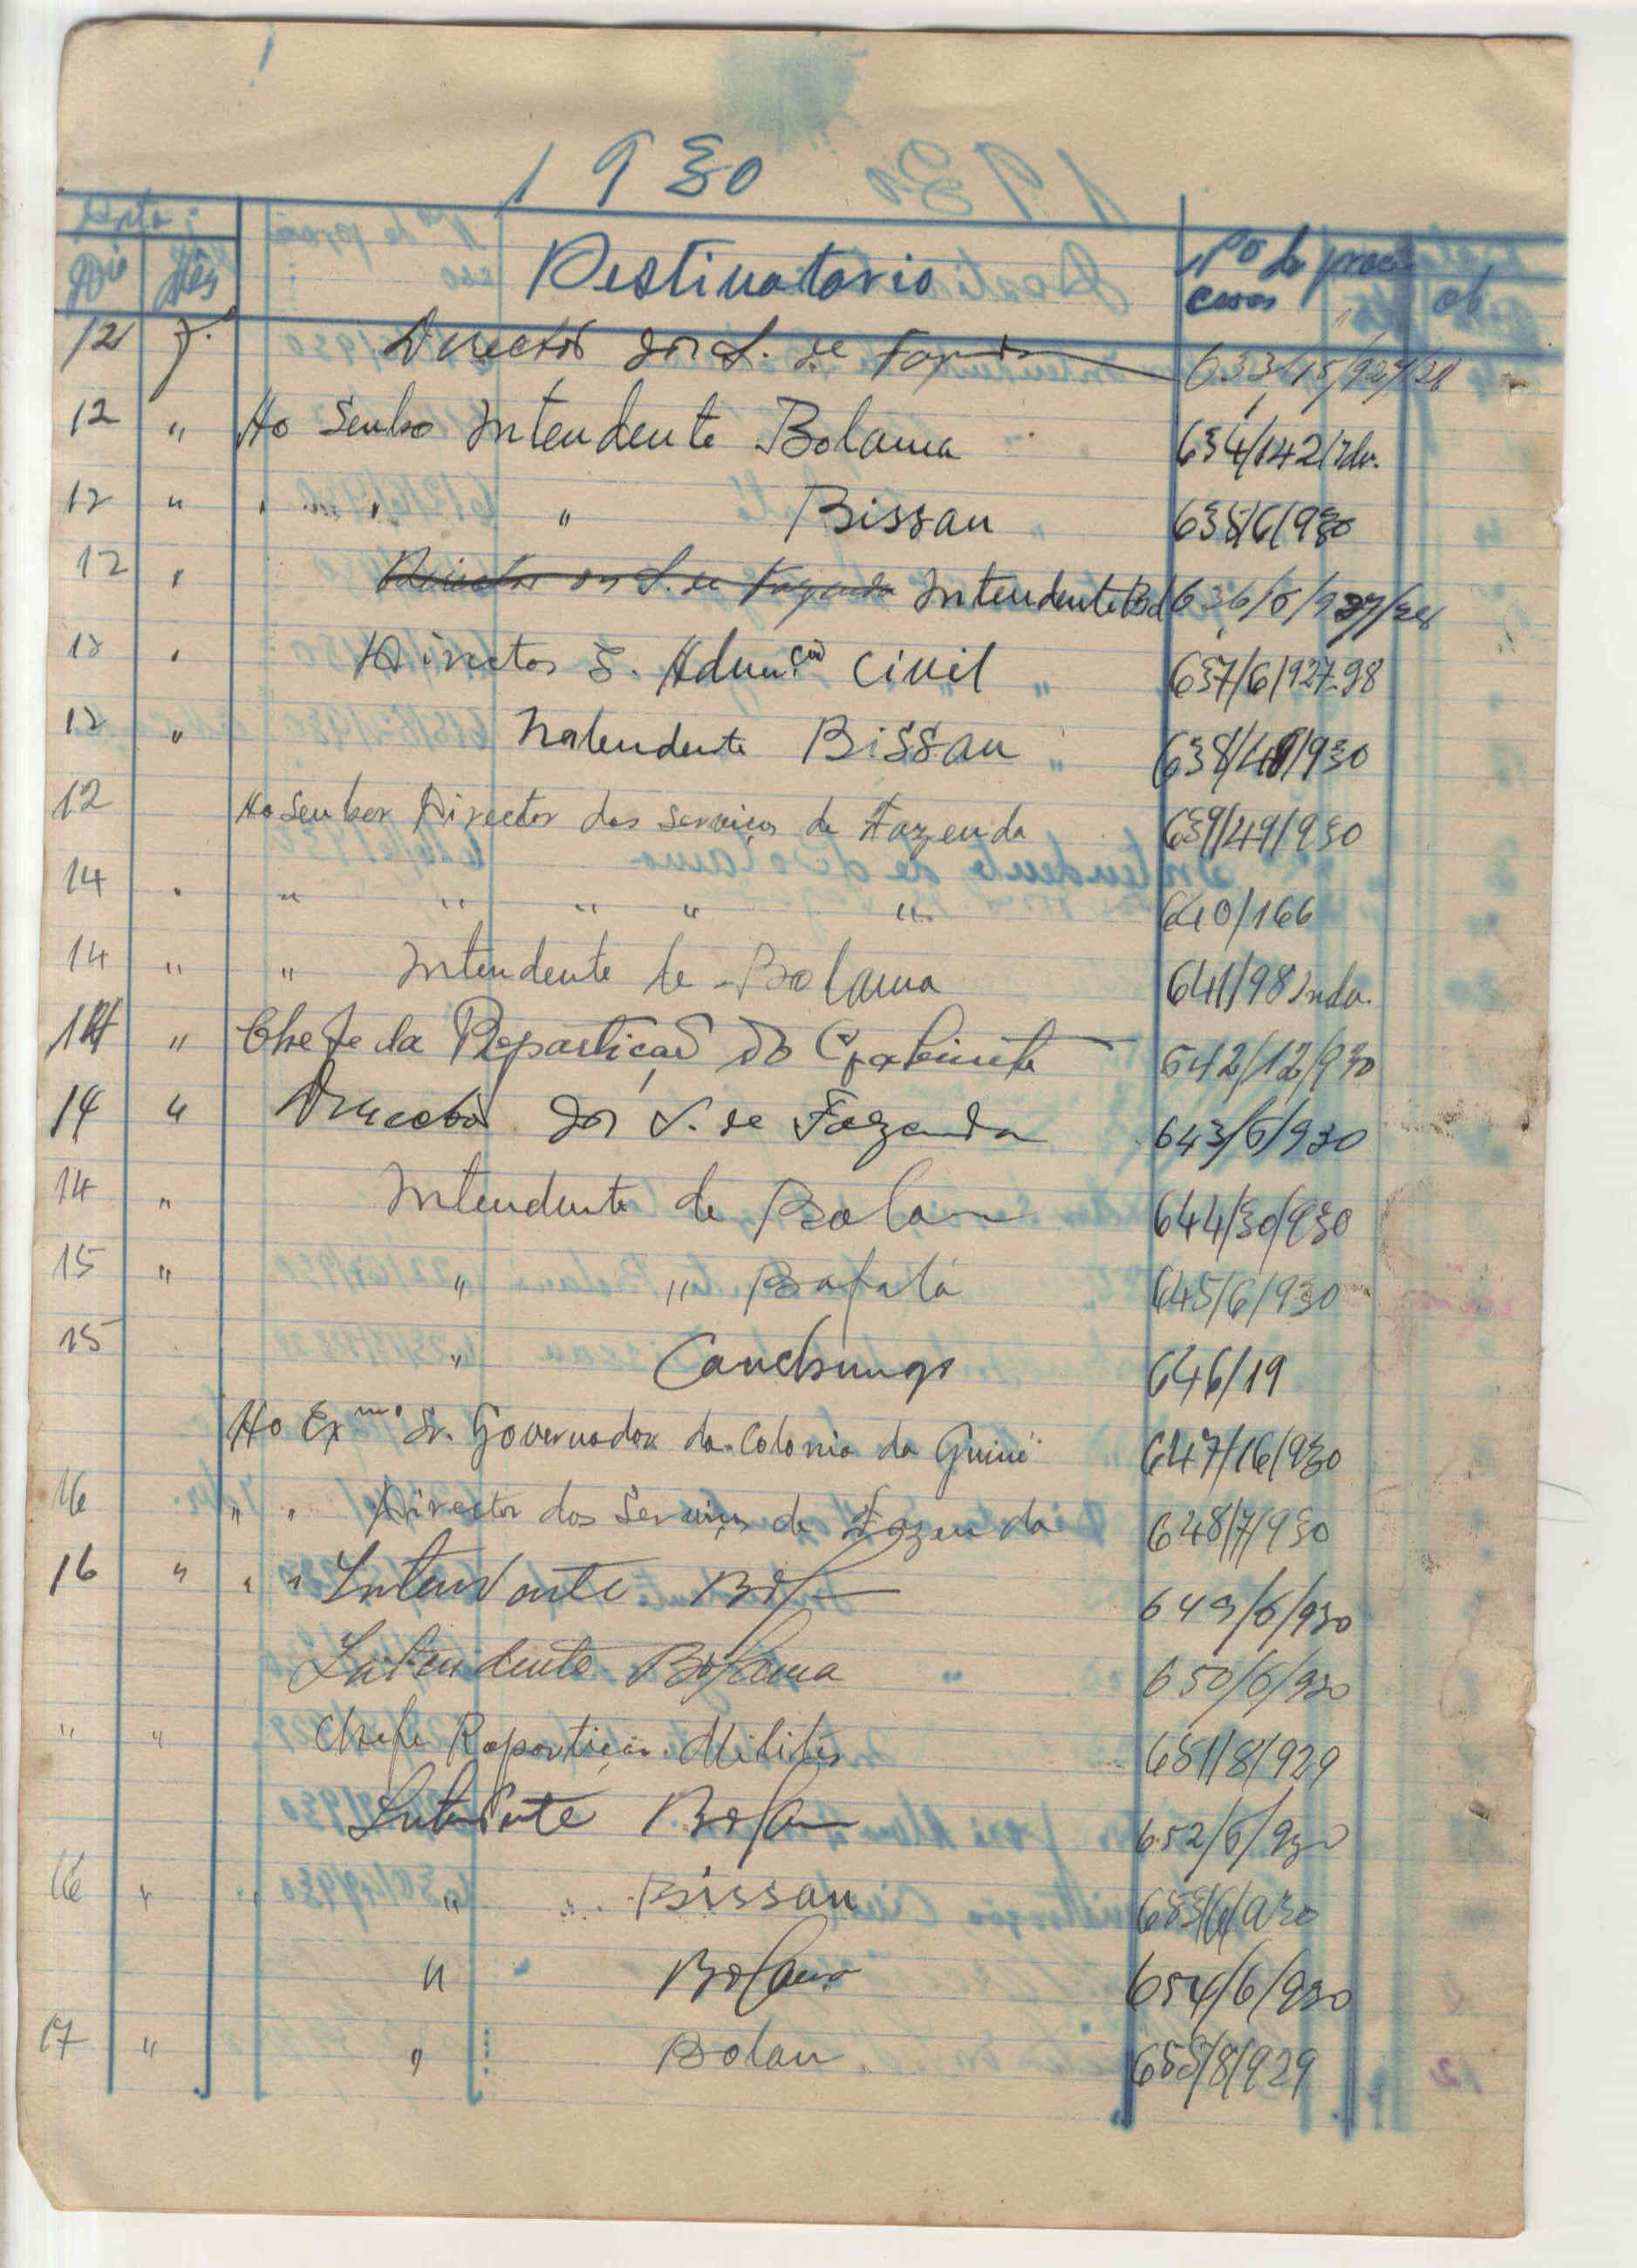 1930
Data:
Dia Mês Destinatario Nº de proc cesos ob
12 J.º Director dos S. de Fazenda 633/15/927/28
12 " Ao Senho Intendente Bolama 634/142/Idn.
12 " " " " Bissau 635/6/930
12 " Director dos S. de Fazenda Intendente Bol 636/6/927/28
12 " Director S. Admn.ção Civil 637/6/927-98
12 " Intendente Bissau 638/48/930
12 Ao Senhor Director dos Serviços de Fazenda 639/49/930
14 " " " " " " 640/166
14 " " Intendente de Bolama 641/98 Indn.
14 " Chefe da Repartição do Gabinete 642/12/930
14 " Director dos S. de Fazenda 643/6/930
14 " Intendente de Bolam 644/30/930
15 " " " Bafatá 645/6/930
15 " Canchungo 646/19
Ao Exmo Sr. Governador da Colonia da Guiné 647/16/930
16 " " Director dos Serviços de Fazenda 648/7/930
16 " " " Intendente Bol 649/6/930
Intendente Bolama 650/6/930
" " Chefe Repartição Militar 651/8/929
Intendente Bolam 652/6/930
16 " " " Bissau 653/6/930
" Bolama 654/6/930
17 " " Bolam 655/8/929